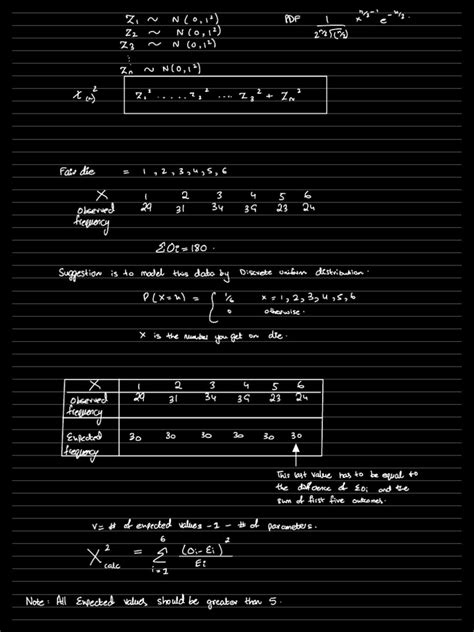 Z₁ ~ N(0,1²)
Z₂ ~ N(0,1²)
Z₃ ~ N(0,1²)
⋮
Zₙ ~ N(0,1²)
PDF 1 / (2^(n/2) Γ(n/2)) x^(n/2-1) e^(-x/2)
χ²₍ₙ₎ Z₁² ..... Z₂² .... Z₃² + Z_N²
Fair die = 1, 2, 3, 4, 5, 6
X 1 2 3 4 5 6
observed frequency 29 31 34 39 23 24
ΣOi = 180.
Suggestion is to model this data by Discrete uniform distribution.
P(X=x) = { 1/6 x = 1, 2, 3, 4, 5, 6
0 otherwise.
X is the number you get on die.
X 1 2 3 4 5 6
observed frequency 29 31 34 39 23 24
Expected frequency 30 30 30 30 30 30
This last value has to be equal to
the difference of ΣOi and the
sum of first five outcomes.
V = # of expected values - 1 - # of parameters.
X²calc = Σ⁶ᵢ₌₁ (Oi - Ei)² / Ei
Note: All Expected values should be greater than 5.